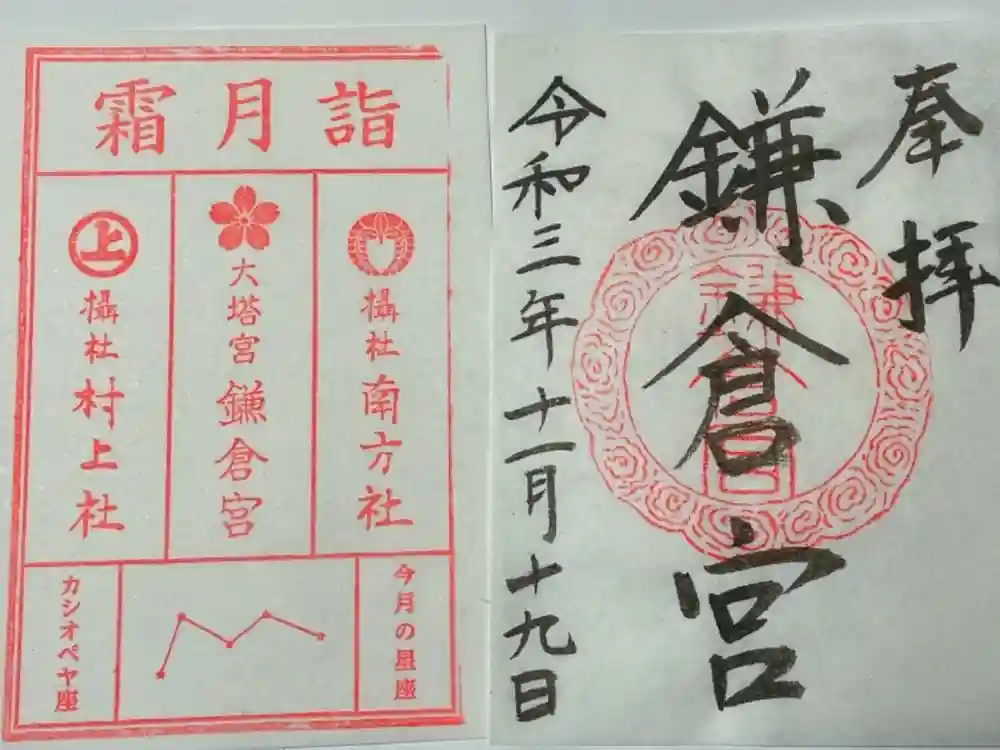 霜月詣
㊤
摂社 村上社
大塔宮 鎌倉宮
摂社 南方社
今月の星座
カシオペヤ座
奉拝
鎌倉宮
鎌倉宮
令和三年十一月十九日